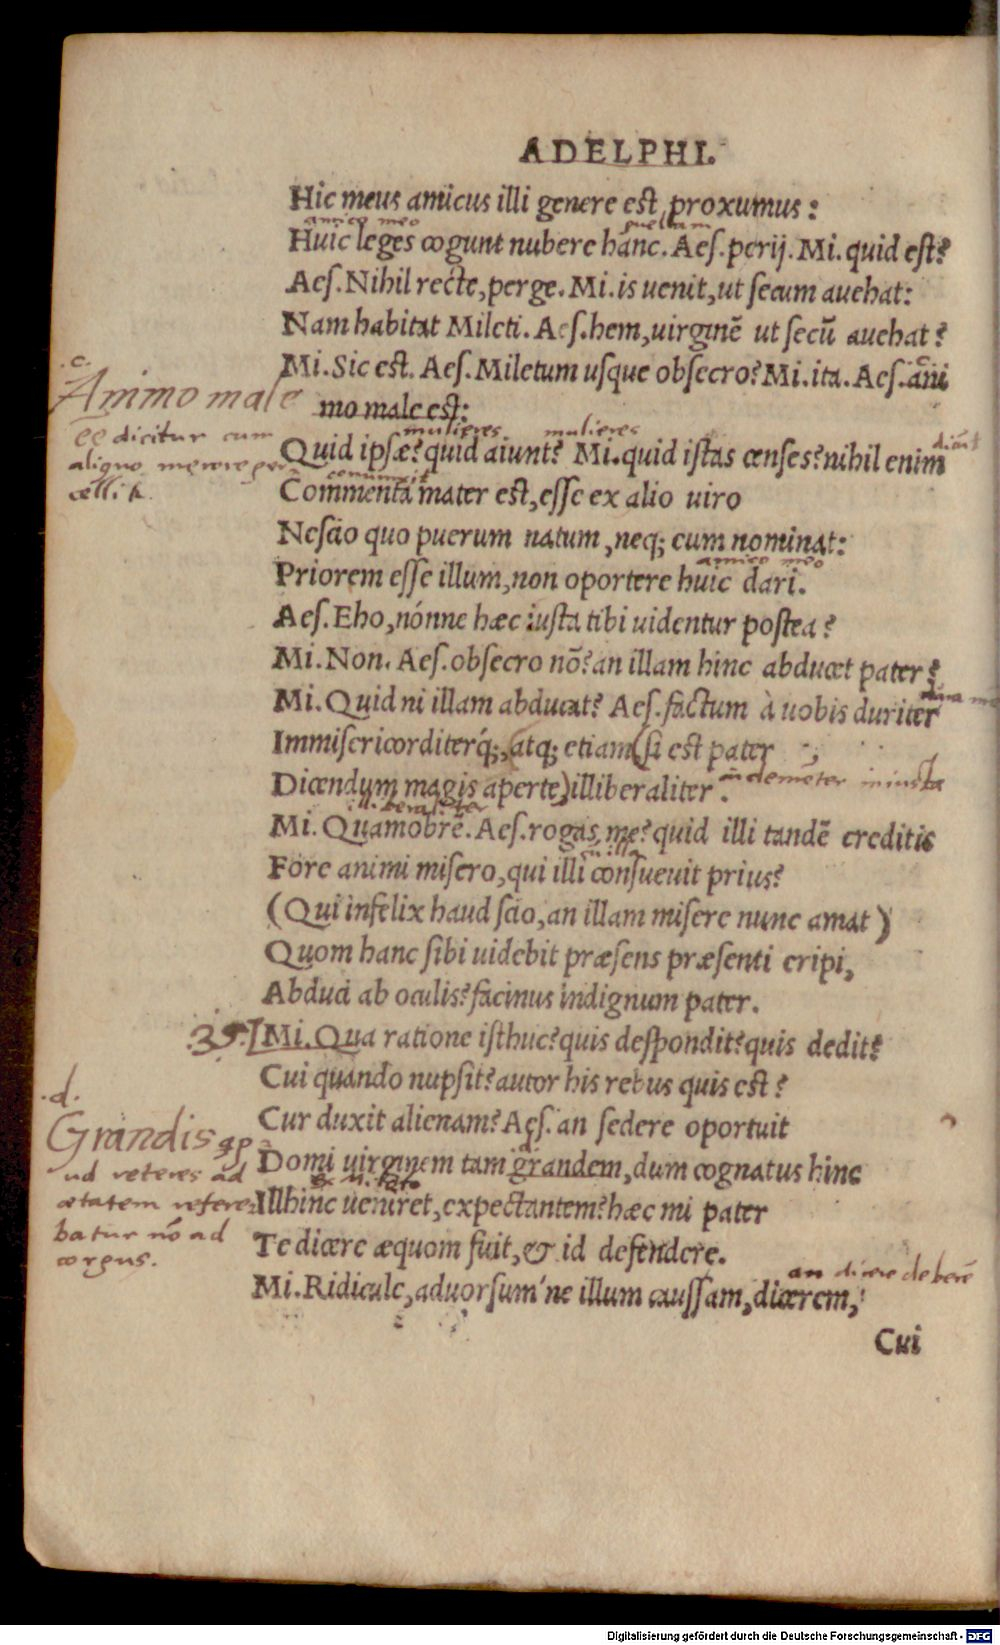 ADELPHI.
Hic meus amicus illi genere est proxumus:
amico meo puellam
Huic leges cogunt nubere hanc. Aes. perij. Mi. quid est?
Aes. Nihil recte, perge. Mi. is uenit, ut secum auehat:
Nam habitat Mileti. Aes. hem, uirginē ut secū auehat?
Mi. Sic est. Aes. Miletum usque obsecro? Mi. ita. Aes. ani
.c.
mo male est:
.c.
Animo male
eē dicitur cum
aliquo merore per
cellit.
mulieres mulieres dicāt
Quid ipsæ? quid aiunt? Mi. quid istas censes? nihil enim
Commenta mater est, esse ex alio uiro
Nescio quo puerum natum, neq; eum nominat:
amico meo
Priorem esse illum, non oportere huic dari.
Aes. Eho, nónne hæc iusta tibi uidentur postea?
Mi. Non. Aes. obsecro nō? an illam hinc abducet pater?
Mi. Quid ni illam abducat? Aes. factum à uobis duriter
Immisericorditerq́;, atq; etiam (si est pater
Dicendum magis aperte) illiberaliter.
illiberaliter
Mi. Quamobrē. Aes. rogas me? quid illi tandē creditis
cū illa
Fore animi misero, qui illi consueuit prius?
(Qui infelix haud scio, an illam misere nunc amat)
Quom hanc sibi uidebit præsens præsenti eripi,
Abduci ab oculis? facinus indignum pater.
.35. [Mi. Qua ratione isthuc? quis despondit? quis dedit?
Cui quando nupsit? autor his rebus quis est?
Cur duxit alienam? Aes. an sedere oportuit
.d.
Domi uirginem tam grandem, dum cognatus hinc
.d.
Grandis ap
ud veteres ad
ætatem refere
batur nō ad
corpus.
ex Mileto
Illhinc ueniret, expectantem? hæc mi pater
Te dicere æquom fuit, & id defendere.
an dicere deberē
Mi. Ridicule, aduorsum'ne illum caussam, dicerem,
Cui
Digitalisierung gefördert durch die Deutsche Forschungsgemeinschaft - DFG